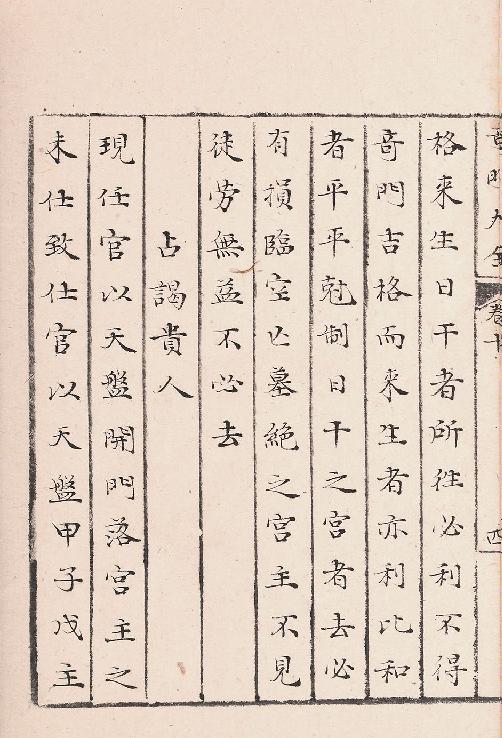 奇門大全 卷十 四
格來生日干者所往必利不得
奇門吉格而來生者亦利比和
者平平尅制日干之宮者去必
有損臨空亡墓絕之宮主不見
徒勞無益不必去
占謁貴人
現任官以天盤開門落宮主之
未仕致仕官以天盤甲子戊主